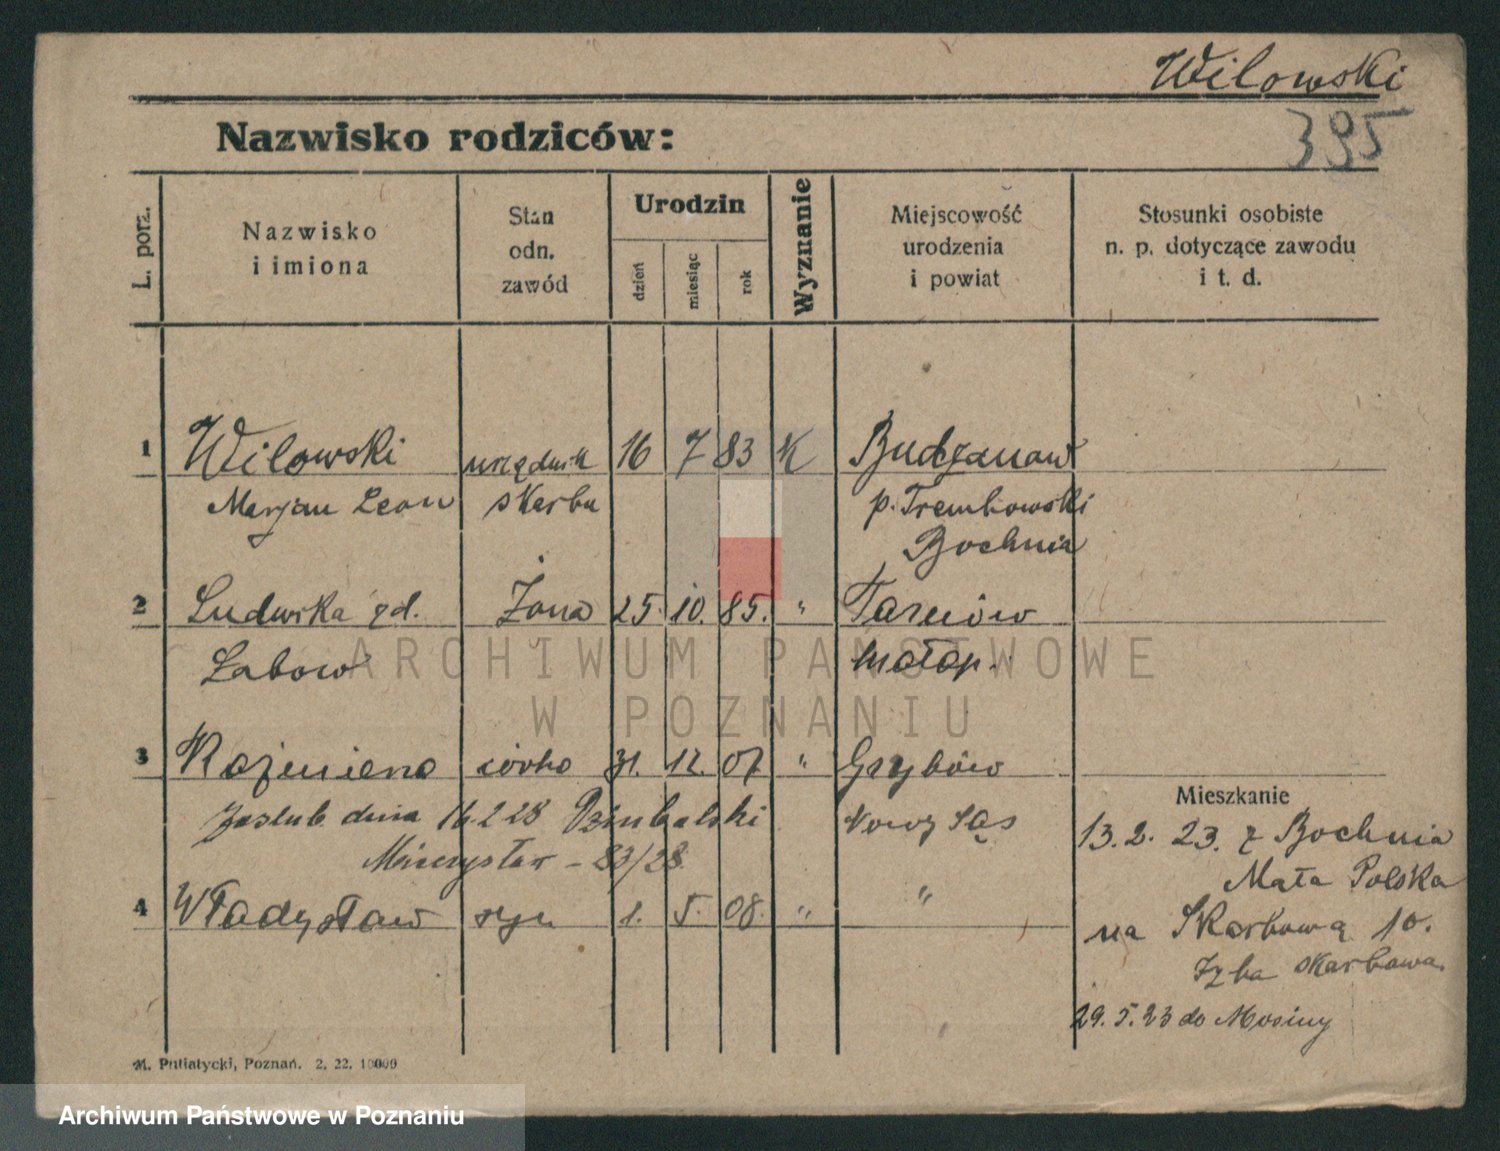 Wilowski
395
Nazwisko rodziców:
L. porz.
Nazwisko
i imiona
Stan
odn.
zawód
Urodzin
dzień
miesiąc
rok
Wyznanie
Miejscowość
urodzenia
i powiat
Stosunki osobiste
n. p. dotyczące zawodu
i t. d.
1 Wilowski urzędnik 16 7 83 K Budzanow
Marjan Leon skarbu p. Trembowski
Bochnia
2 Ludwika zd. Żona 25. 10. 85. " Tarnów
Labow małop.
3 córka 31. 12. 07 " Grybów
Mieszkanie
zaślub. dnia 16.2.28 Nowy Sąs
13.2.23. z Bochnia
Mieczysław - 83/28
Mała Polska
4 Władysław syn 1. 5. 08. " "
na Skarbową 10.
Izba skarbowa
29.5.23 do Mosiny
M. Putiatycki, Poznań. 2, 22. 10000
ARCHIWUM PAŃSTWOWE
W POZNANIU
Archiwum Państwowe w Poznaniu